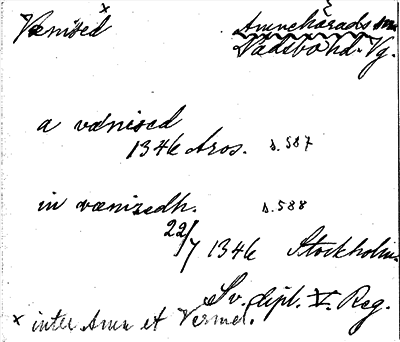 Vænised x
Amnehärads sn
Vadsbo hd. Vg.
a vænised
1346 Aros. s. 587
in vænizedh. s. 588
22/7 1346 Stockholm
Sv. dipl. V. Reg.
x inter Amn et Vermel.